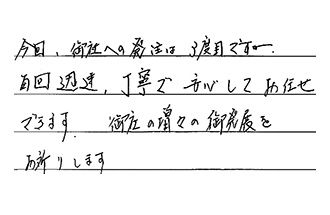 今回、御社への発注は3度目ですが、
毎回迅速、丁寧で安心してお任せ
できます。御社の増々の御発展を
お祈りします